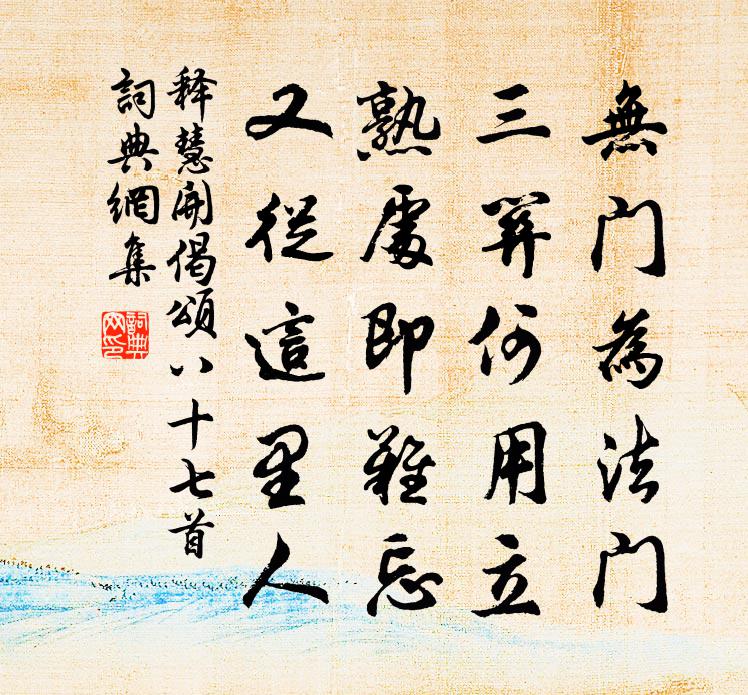 無門為法門
三關何用立
熟處即難忘
又從這里人
释慧開偈頌八十七首
詞典網集
詞典网印